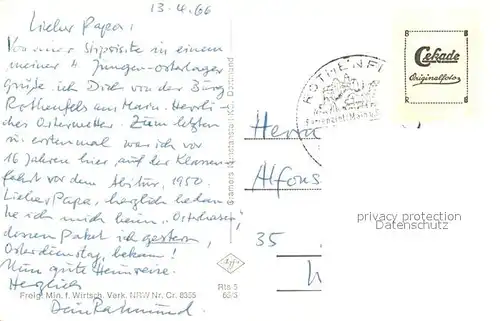 13.4.66
Lieber Papa!
Von einer Stippvisite in einem
meiner 4 Jungen-Osterlager
grüße ich Dich von der Burg
Rothenfels am Main. Herrli-
ches Osterwetter. Zum letzten
u. erstenmal war ich vor
16 Jahren hier, auf der Klassen-
fahrt vor dem Abitur, 1950.
Lieber Papa, herzlich bedan-
ke ich mich beim "Osterhasen",
dessen Paket ich gestern,
Osterdienstag, bekam!
Nun gute Heimreise.
Herzlich
Dein Raimund.
Freig. Min. f. Wirtsch. Verk. NRW Nr. Cr. 8355
Cramers Kunstanstalt KG., Dortmund
Agfa
Rts 5
ROTHENFE
Cekade
Originalfoto
Herrn
Alfons
35
privacy protection
Datenschutz